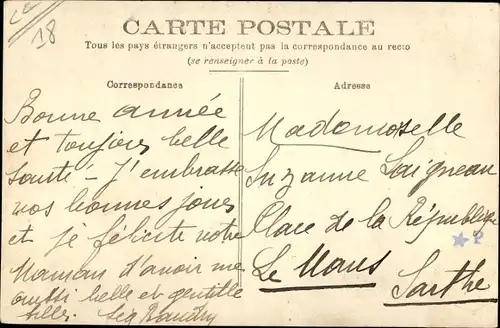 18
CARTE POSTALE
Tous les pays étrangers n'acceptent pas la correspondance au recto
(se renseigner à la poste)
Correspondance
Adresse
Bonne année
et toujours belle
santé - J'embrasse
vos bonnes joues
et je félicite votre
Maman d'avoir une
aussi belle et gentille
fille.
Mademoiselle
Suzanne Saigneau
Place de la République
Le Mans
Sarthe
★P